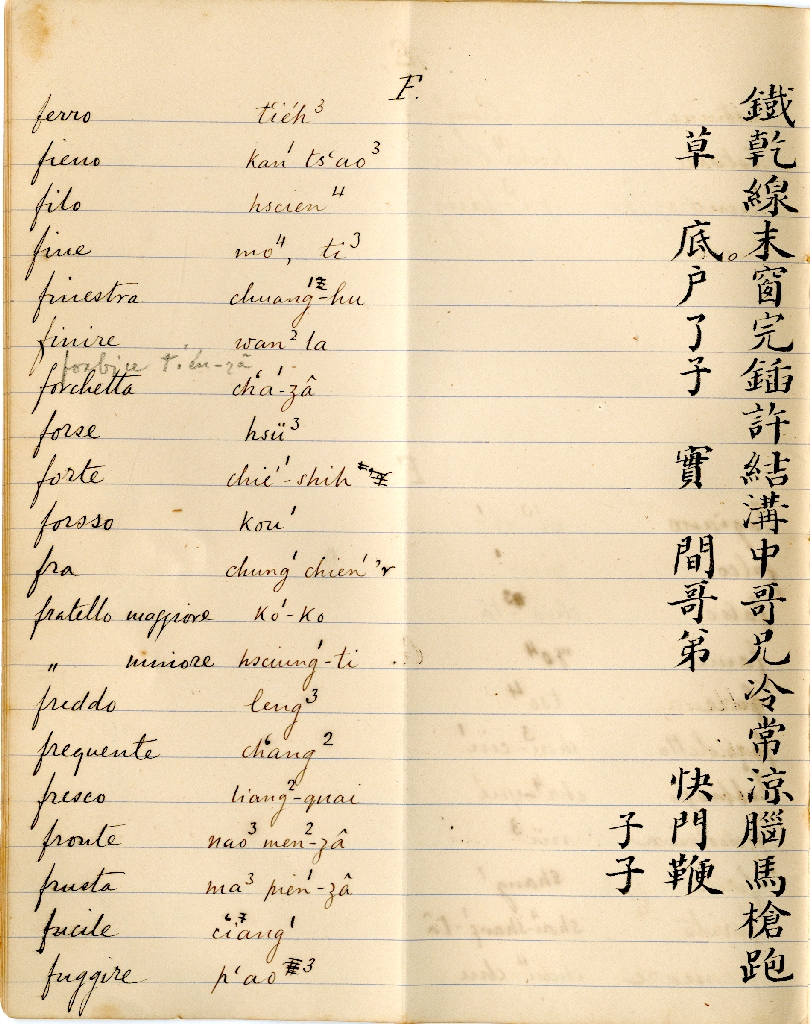 F.
ferro t'iéh³ 鐵
fieno kan¹ ts'ao³ 乾草
filo hscien⁴ 線
fine mo⁴, ti³ 末。底
finestra chuang¹-hu 窗户
finire wan² la 完了
forbice t'ién-zâ
forchetta ch'á¹-zâ 鍤子
forse hsü³ 許
forte chié¹-shih 結實
fosso kou¹ 溝
fra chung¹ chien¹'r 中間
fratello maggiore kó¹-ko 哥哥
„ minore hsciung¹-ti 兄弟
freddo leng³ 冷
frequente ch'ang² 常
fresco liang²-quai 涼快
fronte nao³ men²-zâ 腦門子
frusta ma³ pien¹-zâ 馬鞭子
fucile c'iang¹ 槍
fuggire p'ao³ 跑